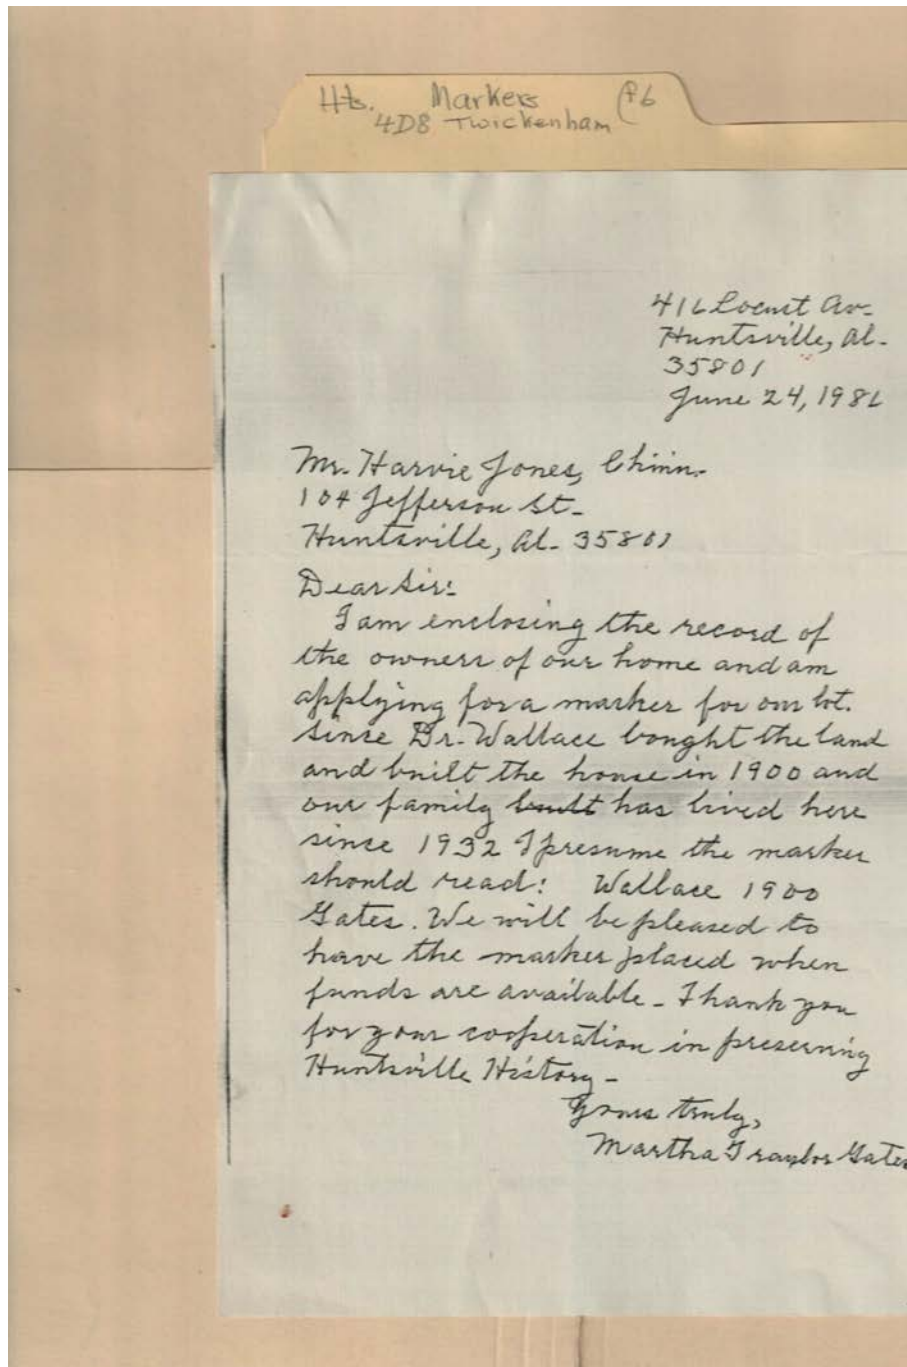 Hts. Markers (P6
4D8 Twickenham
416 Locust Av.
Huntsville, Al.
35801
June 24, 1986
Mr. Harvie Jones, Chmn.
104 Jefferson St.
Huntsville, Al. 35801
Dear Sir:
I am enclosing the record of
the owners of our home and am
applying for a marker for our lot.
Since Dr. Wallace bought the land
and built the house in 1900 and
our family built has lived here
since 1932 I presume the marker
should read: Wallace 1900
Gates. We will be pleased to
have the marker placed when
funds are available. Thank you
for your cooperation in preserving
Huntsville History.
Yours truly,
Martha Traylor Gates